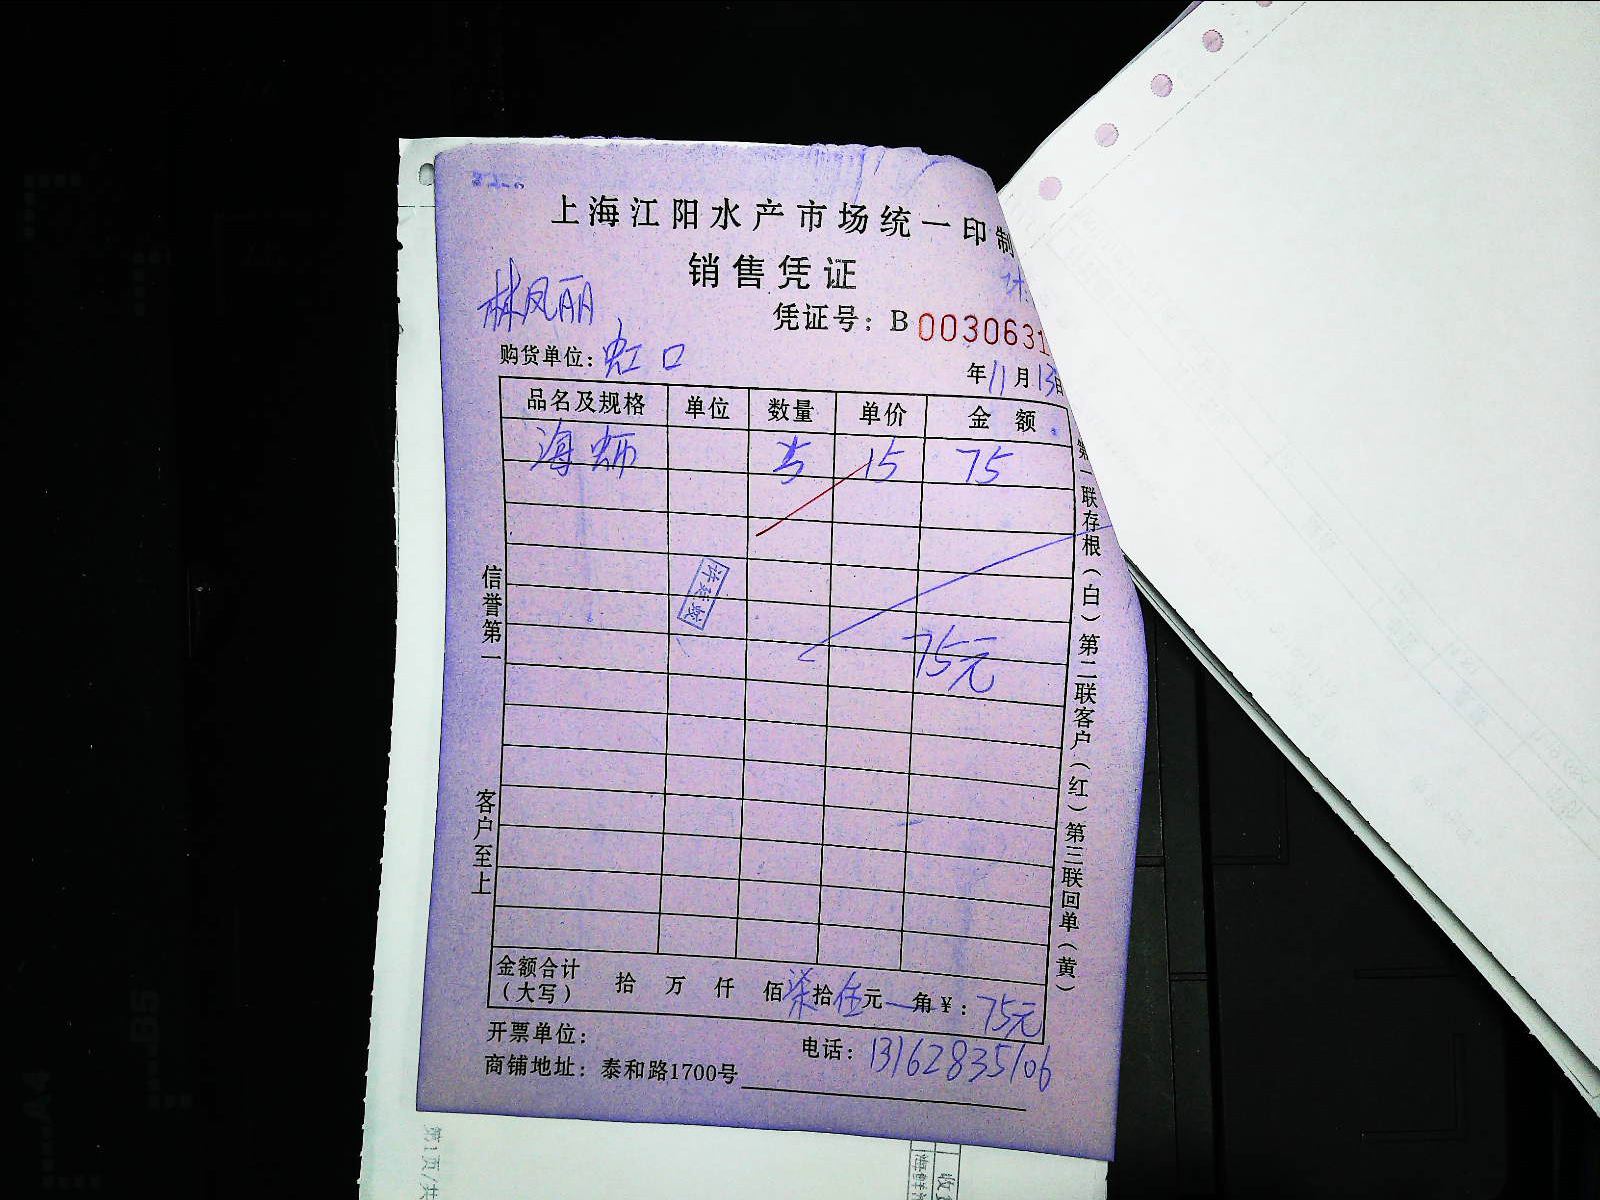 上海江阳水产市场统一印制
销售凭证
林凤丽
凭证号：B 0030631
购货单位：虹口
年11月13日
品名及规格 单位 数量 单价 金额
海蛳 5 15 75
75元
信誉第一
客户至上
第一联存根（白）第二联客户（红）第三联回单（黄）
金额合计（大写） 拾 万 仟 佰柒拾伍元 角￥：75元
开票单位：
电话：13162835106
商铺地址：泰和路1700号
第1页/共